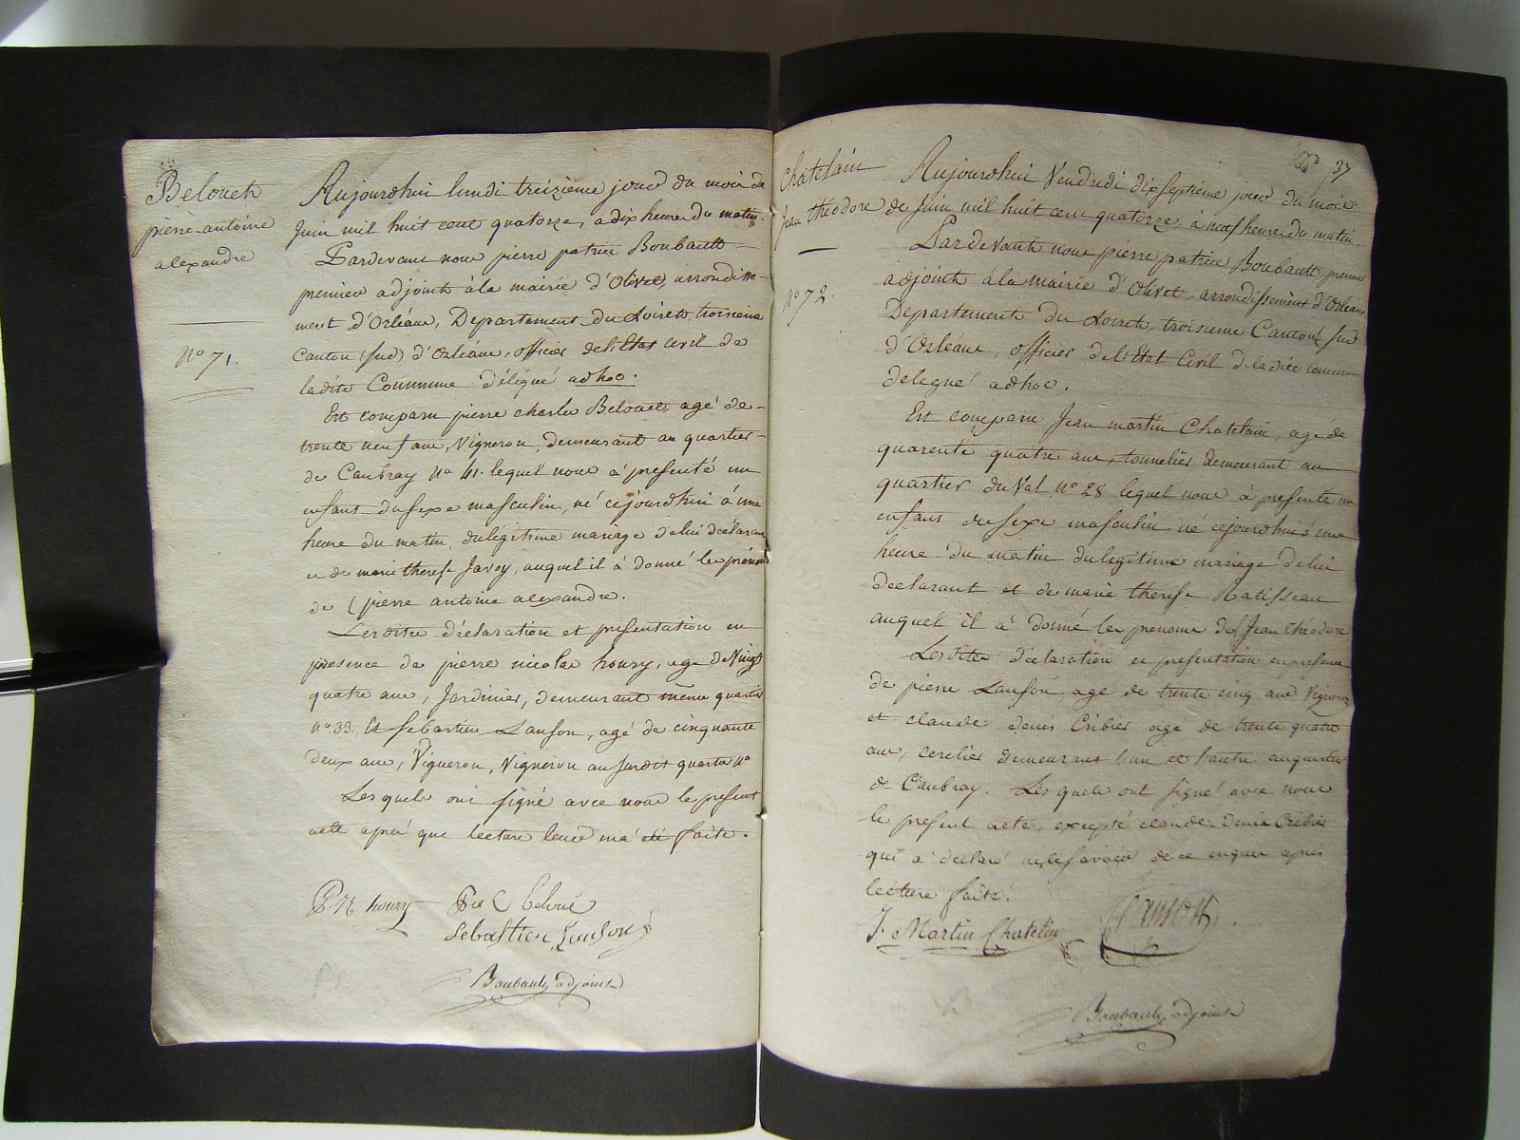 Belouet
pierre antoine
alexandre
N° 71.
Aujourdhui lundi treizieme jour du mois de
Juin mil huit cent quatorze, a dix heures du matin.
Pardevant nous pierre patrice Boubault
premier adjoint à la mairie d'Olivet, arrondisse-
ment d'Orléans, Departement du Loiret, troisieme
Canton (sud) d'Orléans, officier de l'Etat Civil de
la dite Commune délégué ad hoc.
Est comparu pierre charles Belouet agé de
trente neuf ans, Vigneron, demeurant au quartier
de Caubray N° 41. lequel nous à presenté un
enfant du sexe masculin, né cejourdhui à une
heure du matin, du légitime mariage de lui déclarant
et de marie therese Javoy, auquel il à donné les prénoms
de pierre antoine alexandre.
Les dites déclaration et presentation en
presence de pierre nicolas houry, age de Vingt
quatre ans, Jardinier, demeurant même quartier
n° 33. Et Sebastien Lanson, agé de cinquante
deux ans, Vigneron, Vigneron au susdit quartier N°
Lesquels ont signé avec nous le present
acte après que lecture leur en a été faite.
P. N. houry
Sebastien Lanson
Boubault adjoint
37
Chatelain
Jean theodore
N° 72.
Aujourdhui Vendredi dix septieme jour du mois
de Juin mil huit cent quatorze, à neuf heures du matin.
Pardevant nous pierre patrice Boubault, premier
adjoint à la mairie d'Olivet arrondissement d'Orléans
Departement du Loiret, troisieme Canton sud
d'Orléans, officier de l'Etat Civil de la dite commune
delegué ad hoc.
Est comparu Jean martin Chatelain, age de
quarente quatre ans, tonnelier demeurant au
quartier du Val N° 28 lequel nous à presenté un
enfant du sexe masculin né cejourdhui à une
heure du matin du legitime mariage de lui
declarant et de marie therese Ratisseau
auquel il à donné les prenoms de Jean théodore
Les dites déclaration et presentation en presence
de pierre Lanson age de trente cinq ans Vigneron
et claude denis Cribier age de trente quatre
ans, cerclier demeurant l'un et l'autre au quartier
de Caubray. Lesquels ont signé avec nous
le present acte, excepté claude denis Cribier
qui a déclaré ne le savoir de ce enquis après
lecture faite.
J. Martin Chatelin
Lanson
Boubault adjoint